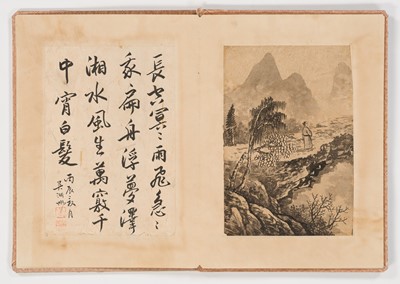 長空冥〻雨飛急〻
扁舟浮夢澤
湘水風生萬竅千
中宵白髮
丙辰秋月